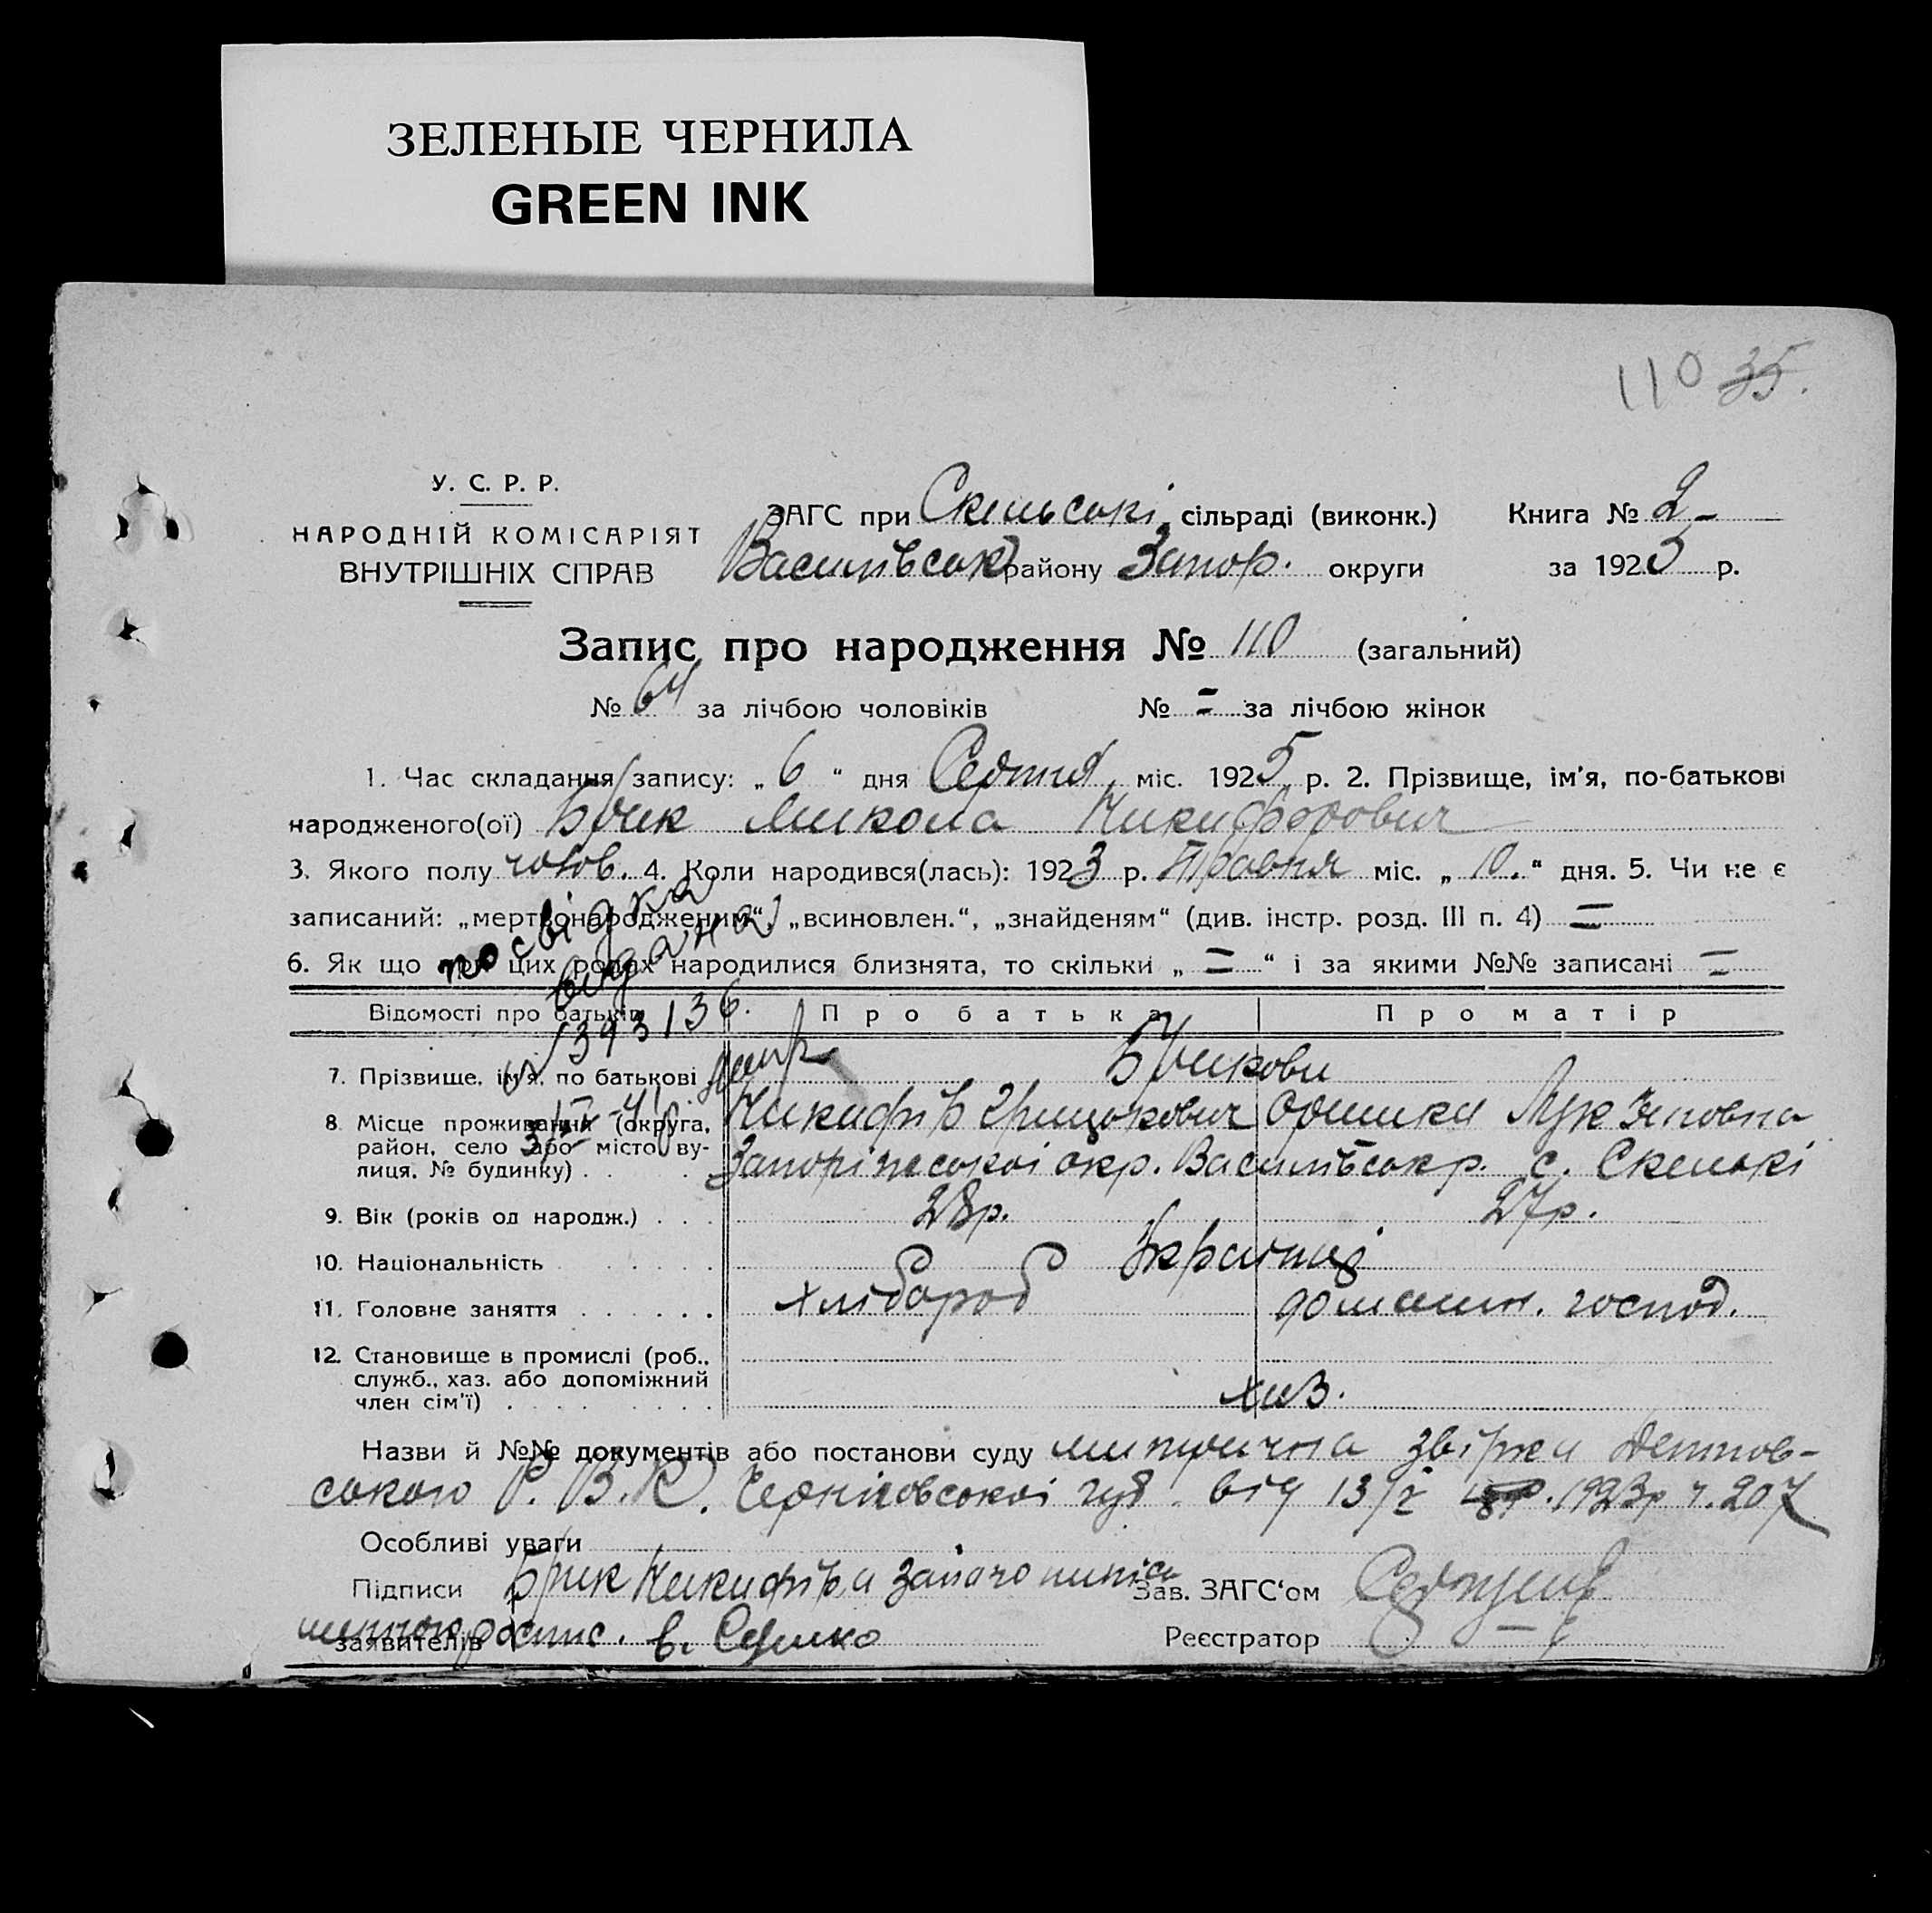 ЗЕЛЕНЫЕ ЧЕРНИЛА
GREEN INK
110 35.
У. С. Р. Р.
НАРОДНІЙ КОМІСАРІЯТ
ВНУТРІШНІХ СПРАВ
ЗАГС при Скельські сільраді (виконк.)
Василівськ району Запор. округи
Книга № 2
за 1925 р.
Запис про народження № 110 (загальний)
№ 64 за лічбою чоловіків № = за лічбою жінок
1. Час складання запису: „ 6 “ дня міс. 1925 р. 2. Прізвище, ім'я, по-батькові
народженого(ої) Брик Микола Никифорович
3. Якого полу чолов. 4. Коли народився(лась): 1923 р. Травня міс. „ 10. “ дня. 5. Чи не є
записаний: „мертвонародженим“, „всиновлен.“, „знайденям“ (див. інстр. розд. III п. 4) =
6. Як що при цих родах народилися близнята, то скільки „ = “ і за якими №№ записані =
посвідка
видана
393136.
Відомості про батьків Про батька Про матір
7. Прізвище, ім'я, по батькові Брикови
Никифір Грицькович Одишка
8. Місце проживання (округа,
район, село або місто ву-
лиця, № будинку) . . Запоріжської окр. Василівськ р. с. Скелькі
9. Вік (років од народж.) . . . 28р. 27р.
10. Національність . . . . . Українці
11. Головне заняття . . . . . . хлібороб домашн. господ.
12. Становище в промислі (роб.,
служб., хаз. або допоміжний
член сім'ї) . . . . . . . . . хаз.
Назви й №№ документів або постанови суду метрична
Р. В. К. Черніговської губ. від 13/X 1923р ч. 207
Особливі уваги
Підписи Брик Никифір а за його
заявителів розпис. в.
Зав. ЗАГС‘ом
Реєстратор